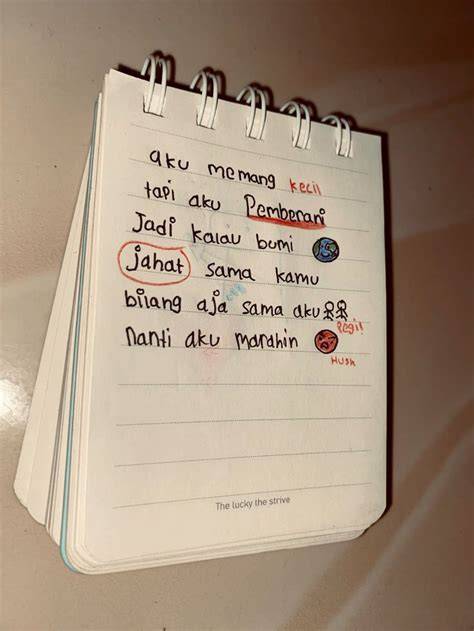 aku memang kecil
tapi aku Pemberani
Jadi kalau bumi
jahat sama kamu
bilang aja sama aku
Pegi!
nanti aku marahin
HUSH
The lucky the strive